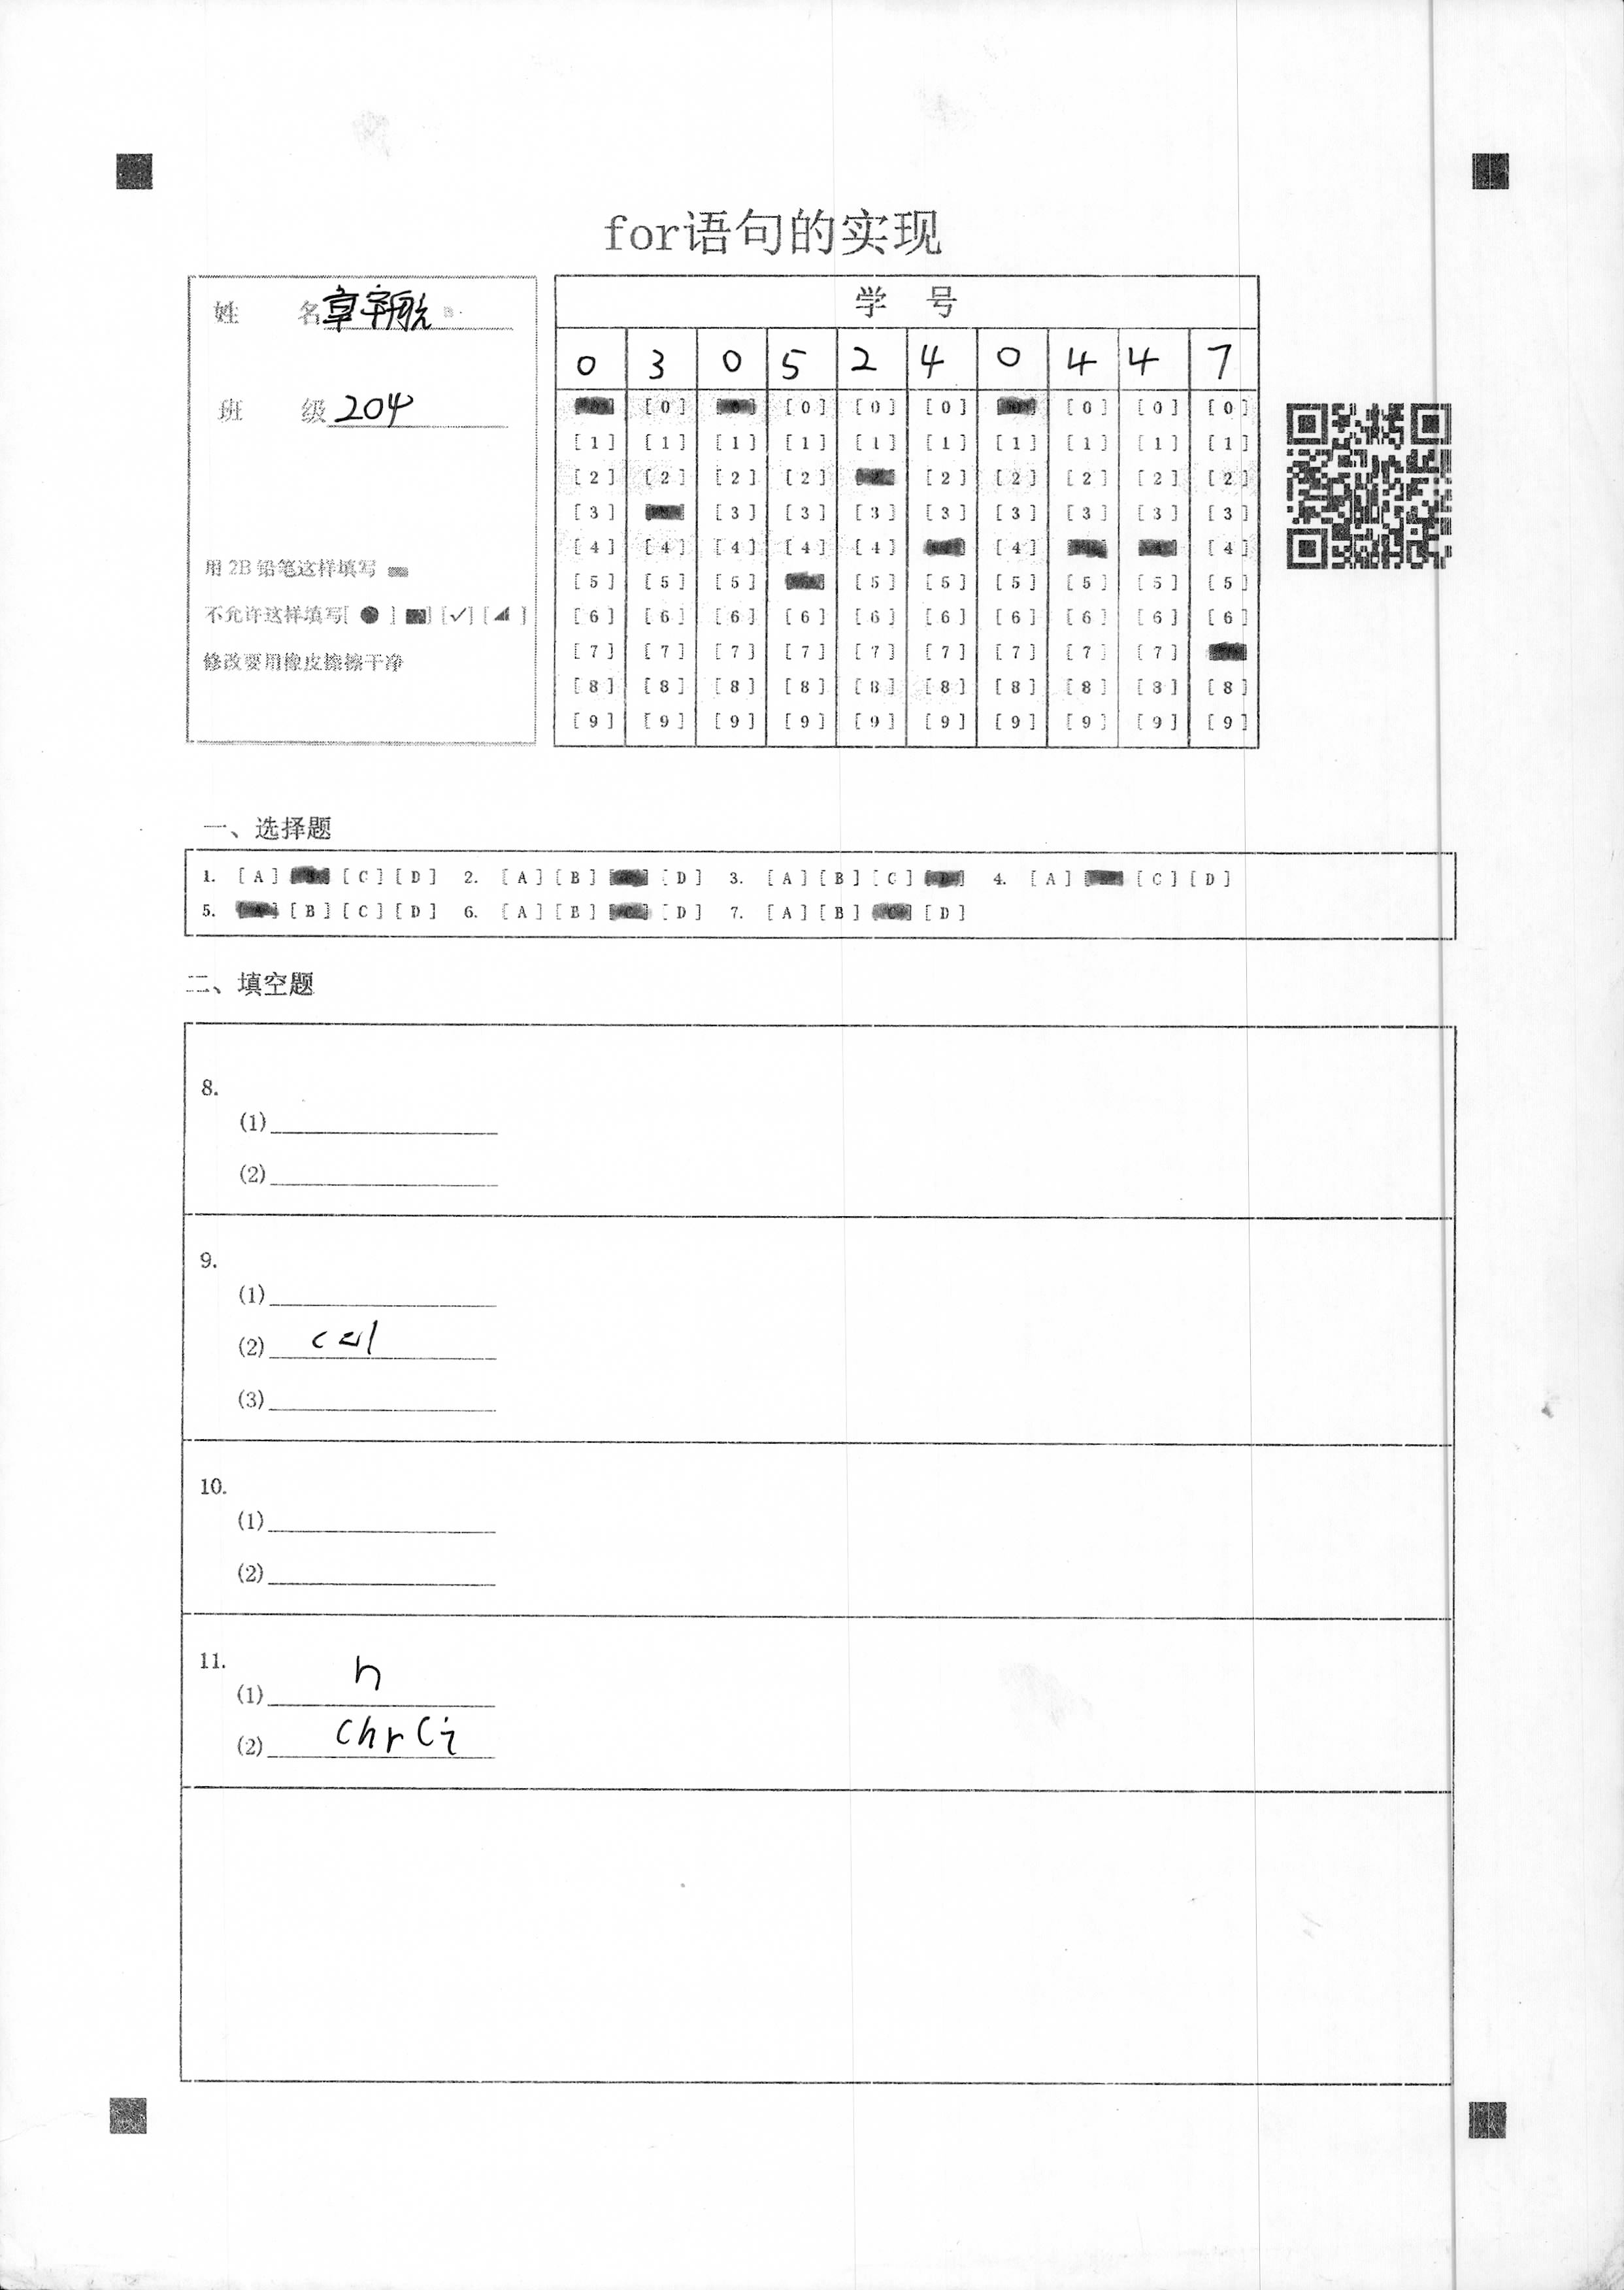 for语句的实现
姓 名 章宇航
班 级 204
用 2B 铅笔这样填写
不允许这样填写[ ● ] [■] [✓] [◢ ]
修改要用橡皮擦擦干净
学 号
0 3 0 5 2 4 0 4 4 7
[0] [0] [0] [0] [0] [0] [0]
[1] [1] [1] [1] [1] [1] [1] [1] [1] [1]
[2] [2] [2] [2] [2] [2] [2] [2] [2]
[3] [3] [3] [3] [3] [3] [3] [3] [3]
[4] [4] [4] [4] [4] [4] [4]
[5] [5] [5] [5] [5] [5] [5] [5] [5]
[6] [6] [6] [6] [6] [6] [6] [6] [6] [6]
[7] [7] [7] [7] [7] [7] [7] [7] [7]
[8] [8] [8] [8] [8] [8] [8] [8] [8] [8]
[9] [9] [9] [9] [9] [9] [9] [9] [9] [9]
一、选择题
1. [A] [C] [D] 2. [A] [B] [D] 3. [A] [B] [C] 4. [A] [C] [D]
5. [B] [C] [D] 6. [A] [B] [D] 7. [A] [B] [D]
二、填空题
8.
(1)
(2)
9.
(1)
(2)
(3)
10.
(1)
(2)
11.
(1) n
(2) chr(i